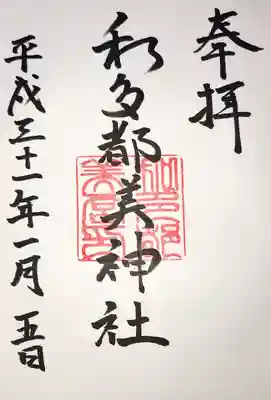 奉拝
和多都美神社
平成三十一年一月五日